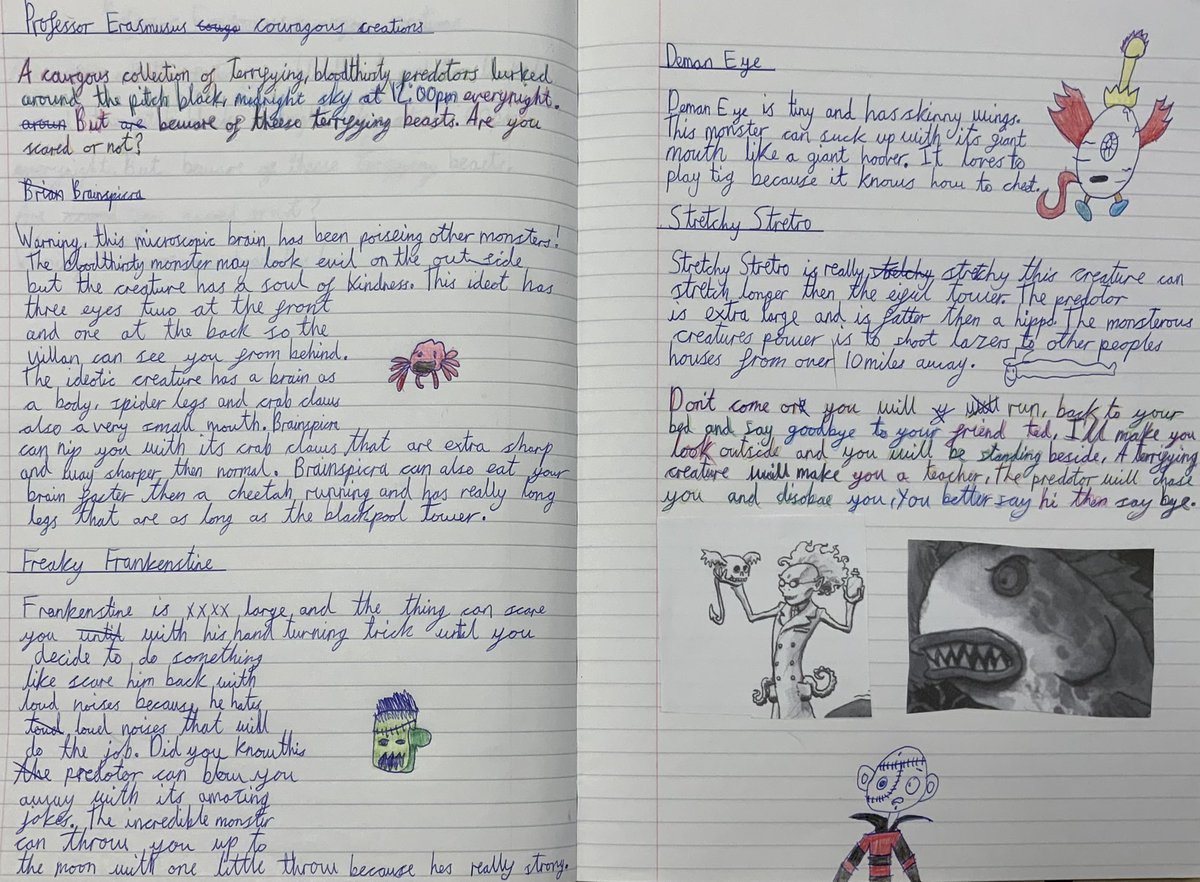 Professor Erasmusus couragous creations
A courgous collection of Terrifying, bloodthirsty predotors lurked
around the pitch black, midnight sky at 12:00pm everynight.
But beware of theese terryying beasts. Are you
scared or not?
Brian Brainspicra
Warning, this microscopic brain has been poiseing other monsters!
The bloodthirsty monster may look evil on the out side
but the creature has a soul of kindness. This ideot has
three eyes two at the front
and one at the back so the
villan can see you from behind.
The ideotic creature has a brain as
a body, spider legs and crab claws
also a very small mouth. Brainspicra
can nip you with its crab claws that are extra sharp
and way sharper then normal. Brainspicra can also eat your
brain faster then a cheetah running and has really long
legs that are as long as the blackpool tower.
Freaky Frankenstine
Frankenstine is xxxx large, and the thing can scare
you until with his hand turning trick until you
decide to do something
like scare him back with
loud noises because he hates
loud noises that will
do the job. Did you know this
the predotor can blow you
away with its amazing
jokes. The incredible monster
can throw you up to
the moon with one little throw because hes really strong.
Deman Eye
Deman Eye is tiny and has skinny wings.
This monster can suck up with its giant
mouth like a giant hoover. It loves to
play tig because it knows how to chet.
Stretchy Stretro
Stretchy Stretro is really stretchy stretchy this creature can
stretch longer then the eifil tower. The predotor
is extra large and is fatter then a hippo. The monsterous
creatures power is to shoot lazers to other peoples
houses from over 10 miles away.
Don't come or you will run, back to your
bed and say goodbye to your friend ted. I'll make you
look outside and you will be standing beside. A terryying
creature will make you a teacher, the predotor will chase
you and disobae you, You better say hi then say bye.